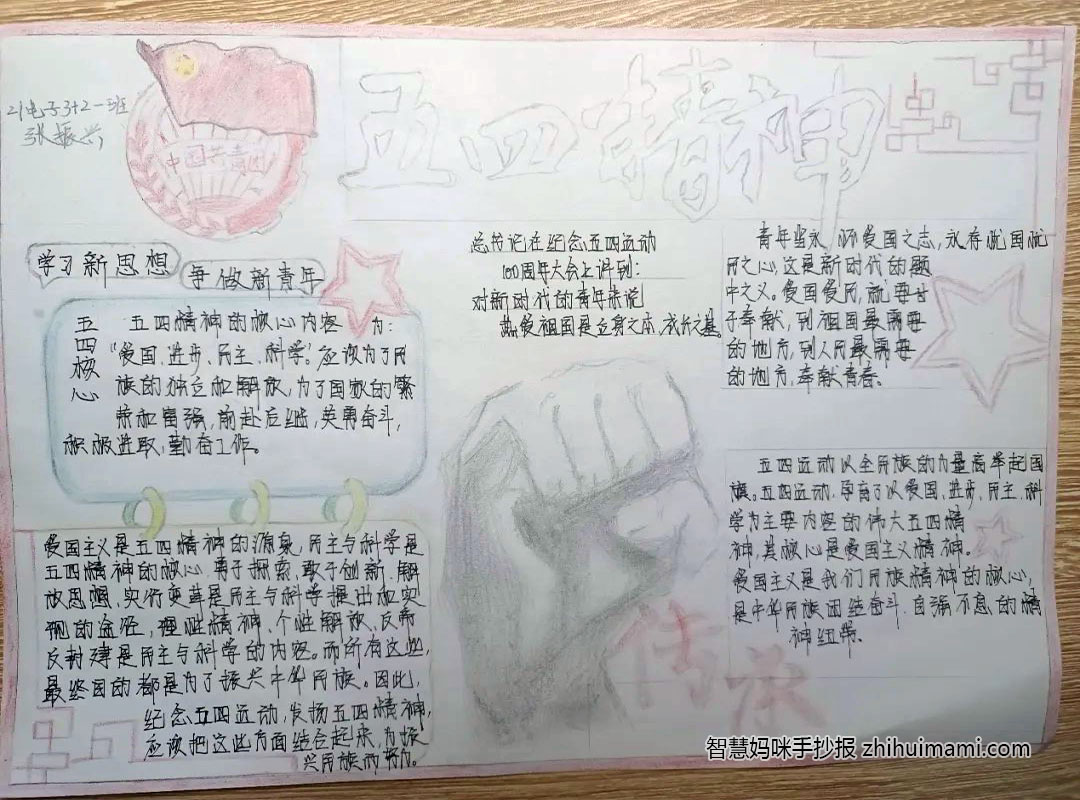 21电子3+2一班
张振兴
中国共青团
五四精神
学习新思想
争做新青年
五四核心
五四精神的核心内容 为:
“爱国、进步、民主、科学”。应该为了民
族的独立和解放,为了国家的繁
荣和富强,前赴后继,英勇奋斗,
积极进取,勤奋工作。
爱国主义是五四精神的源泉,民主与科学是
五四精神的核心,勇于探索、敢于创新、解
放思想、实行变革是民主与科学提出和实
现的途径,理性精神、个性解放、反帝
反封建是民主与科学的内容。而所有这些,
最终目的都是为了振兴中华民族。因此,
纪念五四运动,发扬五四精神,
应该把这些方面结合起来,为振
兴民族而努力。
总书记在纪念五四运动
100周年大会上讲到:
对新时代的青年来说
热爱祖国是立身之本,成长之基。
青年当永怀爱国之志,永存忧国忧
民之心,这是新时代的题
中之义。爱国爱民,就要甘
于奉献,到祖国最需要
的地方,到人民最需要
的地方,奉献青春。
五四运动以全民族的力量高举起国
旗。五四运动,孕育了以爱国、进步、民主、科
学为主要内容的伟大五四精
神,其核心是爱国主义精神。
爱国主义是我们民族精神的核心,
是中华民族团结奋斗、自强不息的精
神纽带。
传承
智慧妈咪手抄报 zhihuimami.com